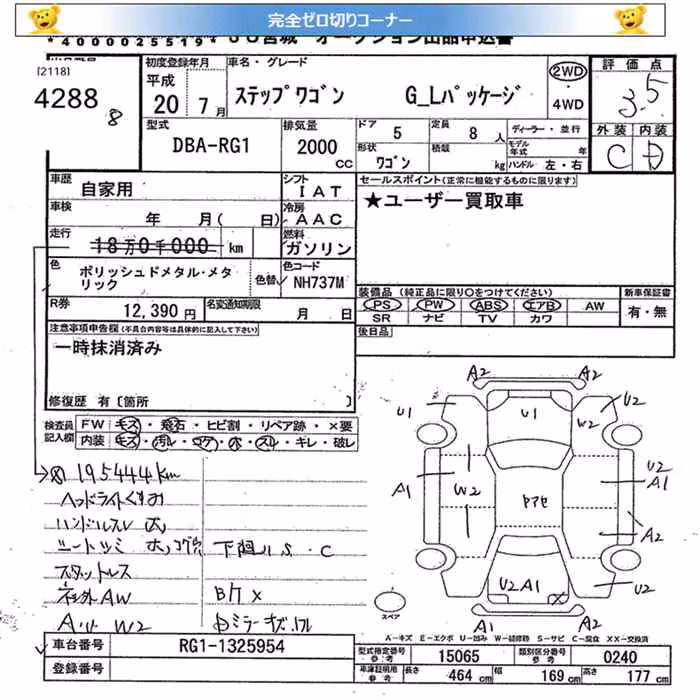 完全ゼロ切りコーナー
*4000025519* JU宮城 オークション出品申込書
[2118]
4288
8
初度登録年月
平成
20 年 7 月
車名・グレード
ステップワゴン G_Lパッケージ
2WD
・
4WD
評価点
3.5
外装 内装
C D
型式
DBA-RG1
排気量
2000
CC
ドア 5
定員 8 人
ディーラー・並行
形状 ワゴン
積載 kg
モデル年式 年
ハンドル 左・右
車歴
自家用
シフト
IAT
車検
年 月( 日)
冷房
AAC
走行
18万0千000 km
燃料
ガソリン
色
ポリッシュドメタル・メタリック
色替
色コード
NH737M
R券
12,390 円
名変通知期限
月 日
セールスポイント(正常に機能するものに限ります)
★ユーザー買取車
装備品(純正品に限り○をつけてください)
新車保証書
PS PW ABS エアB AW
SR ナビ TV カワ
有・無
後日品
注意事項申告欄(不具合内容等は具体的に記入して下さい)
一時抹消済み
修復歴 有〔箇所 〕
検査員
記入欄
FW キズ・飛石・ヒビ割・リペア跡・×要
内装 キズ・汚レ・コゲ・ホ・スレ・キレ・破レ
195444km
ヘッドライトくすみ
ハンドルスレ 大
シートシミ ホ、コゲ穴 下廻り S・C
スタットレス
社外AW
BケX
Aット W2
Dミラーキズ、ワレ
A2 A2
U1 U1 U2
W2
A1 W2 ドアセ U2
A1
A2
U2A1 X U2
スペア
A1 A2
A−キズ E−エクボ U−凹み W−補修跡 S−サビ C−腐食 XX−交換済
車台番号
RG1-1325954
登録番号
型式指定番号
参考
15065
類別区分番号
参考
0240
車庫証明用
参考
長さ 464 cm
幅 169 cm
高さ 177 cm